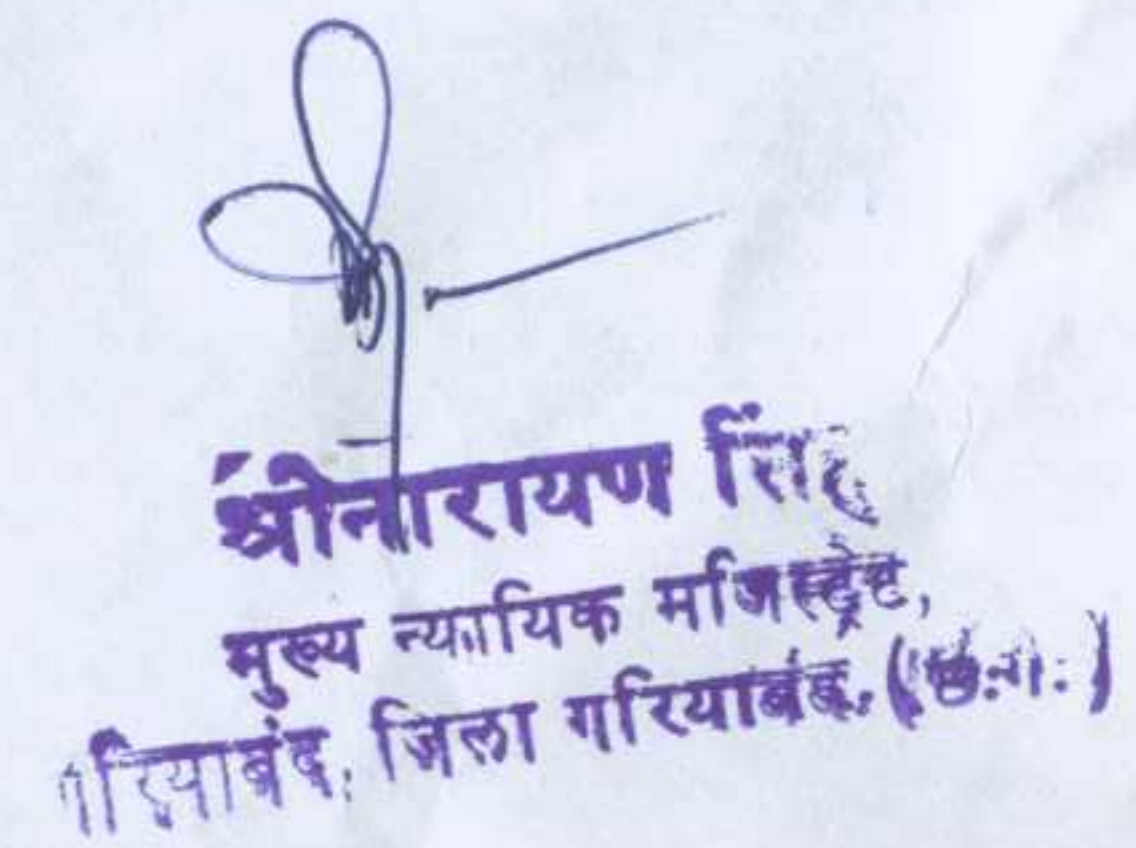 श्रीनारायण सिंह
मुख्य न्यायिक मजिस्ट्रेट,
गरियाबंद, जिला गरियाबंद. (छ.ग.)